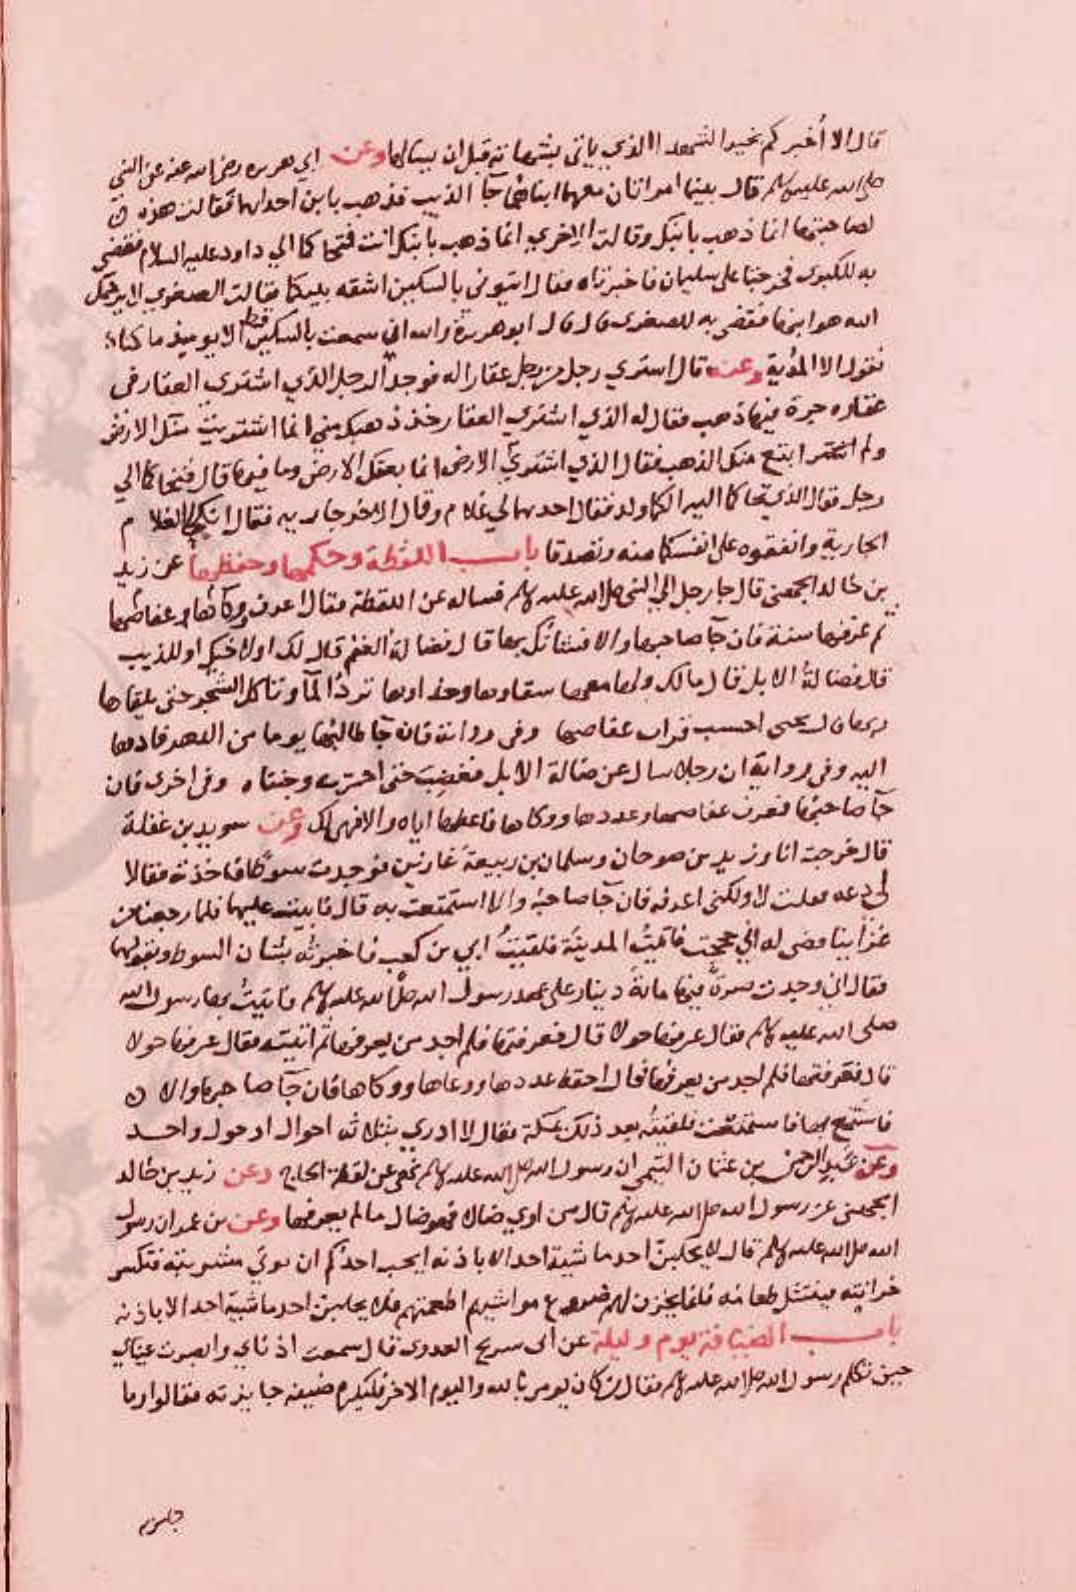 قال الا أخبركم بخير الشهدا الذي ياتي بشهادته قبل ان يسالها وعن ابي هريره رضي الله عنه عن النبي
صلى الله عليه وسلم قال بينما امراتان معهما ابناهما جآ الذيب فذهب بابن احداهما فقالت هذه
لصاحبتها انما ذهب بابنك وقالت الاخري انما ذهب بابنك انت فتحاكما الي داود عليه السلام فقضي
به للكبري فخرجتا على سليمان فاخبرتاه فقال ايتوني بالسكين اشقه بينكما فقالت الصغري لا يرحمك
الله هو ابنها فقضي به للصغرى قال قال ابو هريرة والله ان سمعت بالسكين قط الا يوميذ ما كنا
نقول الا المدية وعنه قال اشتري رجل من رجل عقارا له فوجد الرجل الذي اشتري العقار في
عقاره جرة فيها ذهب فقال له الذي اشتري العقار خذ ذهبك مني انما اشتريت منك الارض
ولم ابتع منك الذهب فقال الذي اشترى الارض انما بعتك الارض وما فيها قال فتحاكما الي
رجل فقال الذي تحاكما اليه الكما ولد فقال احدهما لي غلام وقال الاخر جاريه فقال انكحوا الغلام
الجارية وانفقوه على انفسكما منه وتصدقا باب اللقطة وحكمها وحفظها عن زيد
بن خالد الجهني قال جا رجل الي النبي صلى الله عليه وسلم فساله عن اللقطة فقال اعرف وكآئها وعفاصها
ثم عرفها سنة فان جآ صاحبها والا فشانك بها قال فضالة الغنم قال لك او لاخيك او للذيب
قال فضالة الابل قال مالك ولها معها سقاوها وحذاوها ترد المآ وتاكل الشجر حتى يلقاها
ربها قال يحيى احسب قرات عفاصها وفي رواية فان جآ طالبها يوما من الدهر فادها
اليه وفي رواية ان رجلا سال عن ضالة الابل فغضب حتى احمرت وجنتاه وفي اخرى فان
جآ صاحبها فعرف عفاصها وعددها ووكاها فاعطها اياه والا فهي لك وعن سويد بن غفلة
قال خرجت انا وزيد بن صوحان وسلمان بن ربيعة غازين فوجدت سوطا فاخذته فقالا
لي دعه فقلت لا ولكني اعرفه فان جآ صاحبه والا استمتعت به قال فابيت عليهما فلما رجعنا من
غزاتنا قضى لي اني حججت فاتيت المدينة فلقيت ابي بن كعب فاخبرته بشان السوط وبقولهما
فقال اني وجدت صرة فيها مائة دينار على عهد رسول الله صلى الله عليه وسلم فاتيت بها رسول الله
صلى الله عليه وسلم فقال عرفها حولا قال فعرفتها فلم اجد من يعرفها ثم اتيته فقال عرفها حولا
قال فعرفتها فلم اجد من يعرفها فقال احفظ عددها ووعاها ووكاها فان جآ صاحبها والا
فاستمتع بها فاستمتعت فلقيته بعد ذلك بمكة فقال لا ادري بثلاثة احوال او حول واحد
وعن عبد الرحمن بن عثمان التيمي ان رسول الله صلى الله عليه وسلم نهى عن لقطة الحاج وعن زيد بن خالد
الجهني عن رسول الله صلى الله عليه وسلم قال من اوي ضالا فهو ضال ما لم يعرفها وعن بن عمر ان رسول
الله صلى الله عليه وسلم قال لا يحلبن احد ماشية احد الا باذنه ايحب احدكم ان توتي مشربته فتكسر
خزانته فينتثل طعامه فانما يخزن لهم ضروع مواشيهم اطعمتهم فلا يحلبن احد ماشية احد الا باذنه
باب الضيافة يوم وليلة عن ابي سريح العدوي قال سمعت اذناي وابصرت عيناي
حين تكلم رسول الله صلى الله عليه وسلم فقال من كان يومن بالله واليوم الاخر فليكرم ضيفه جايزته فقالوا وما
جايزته